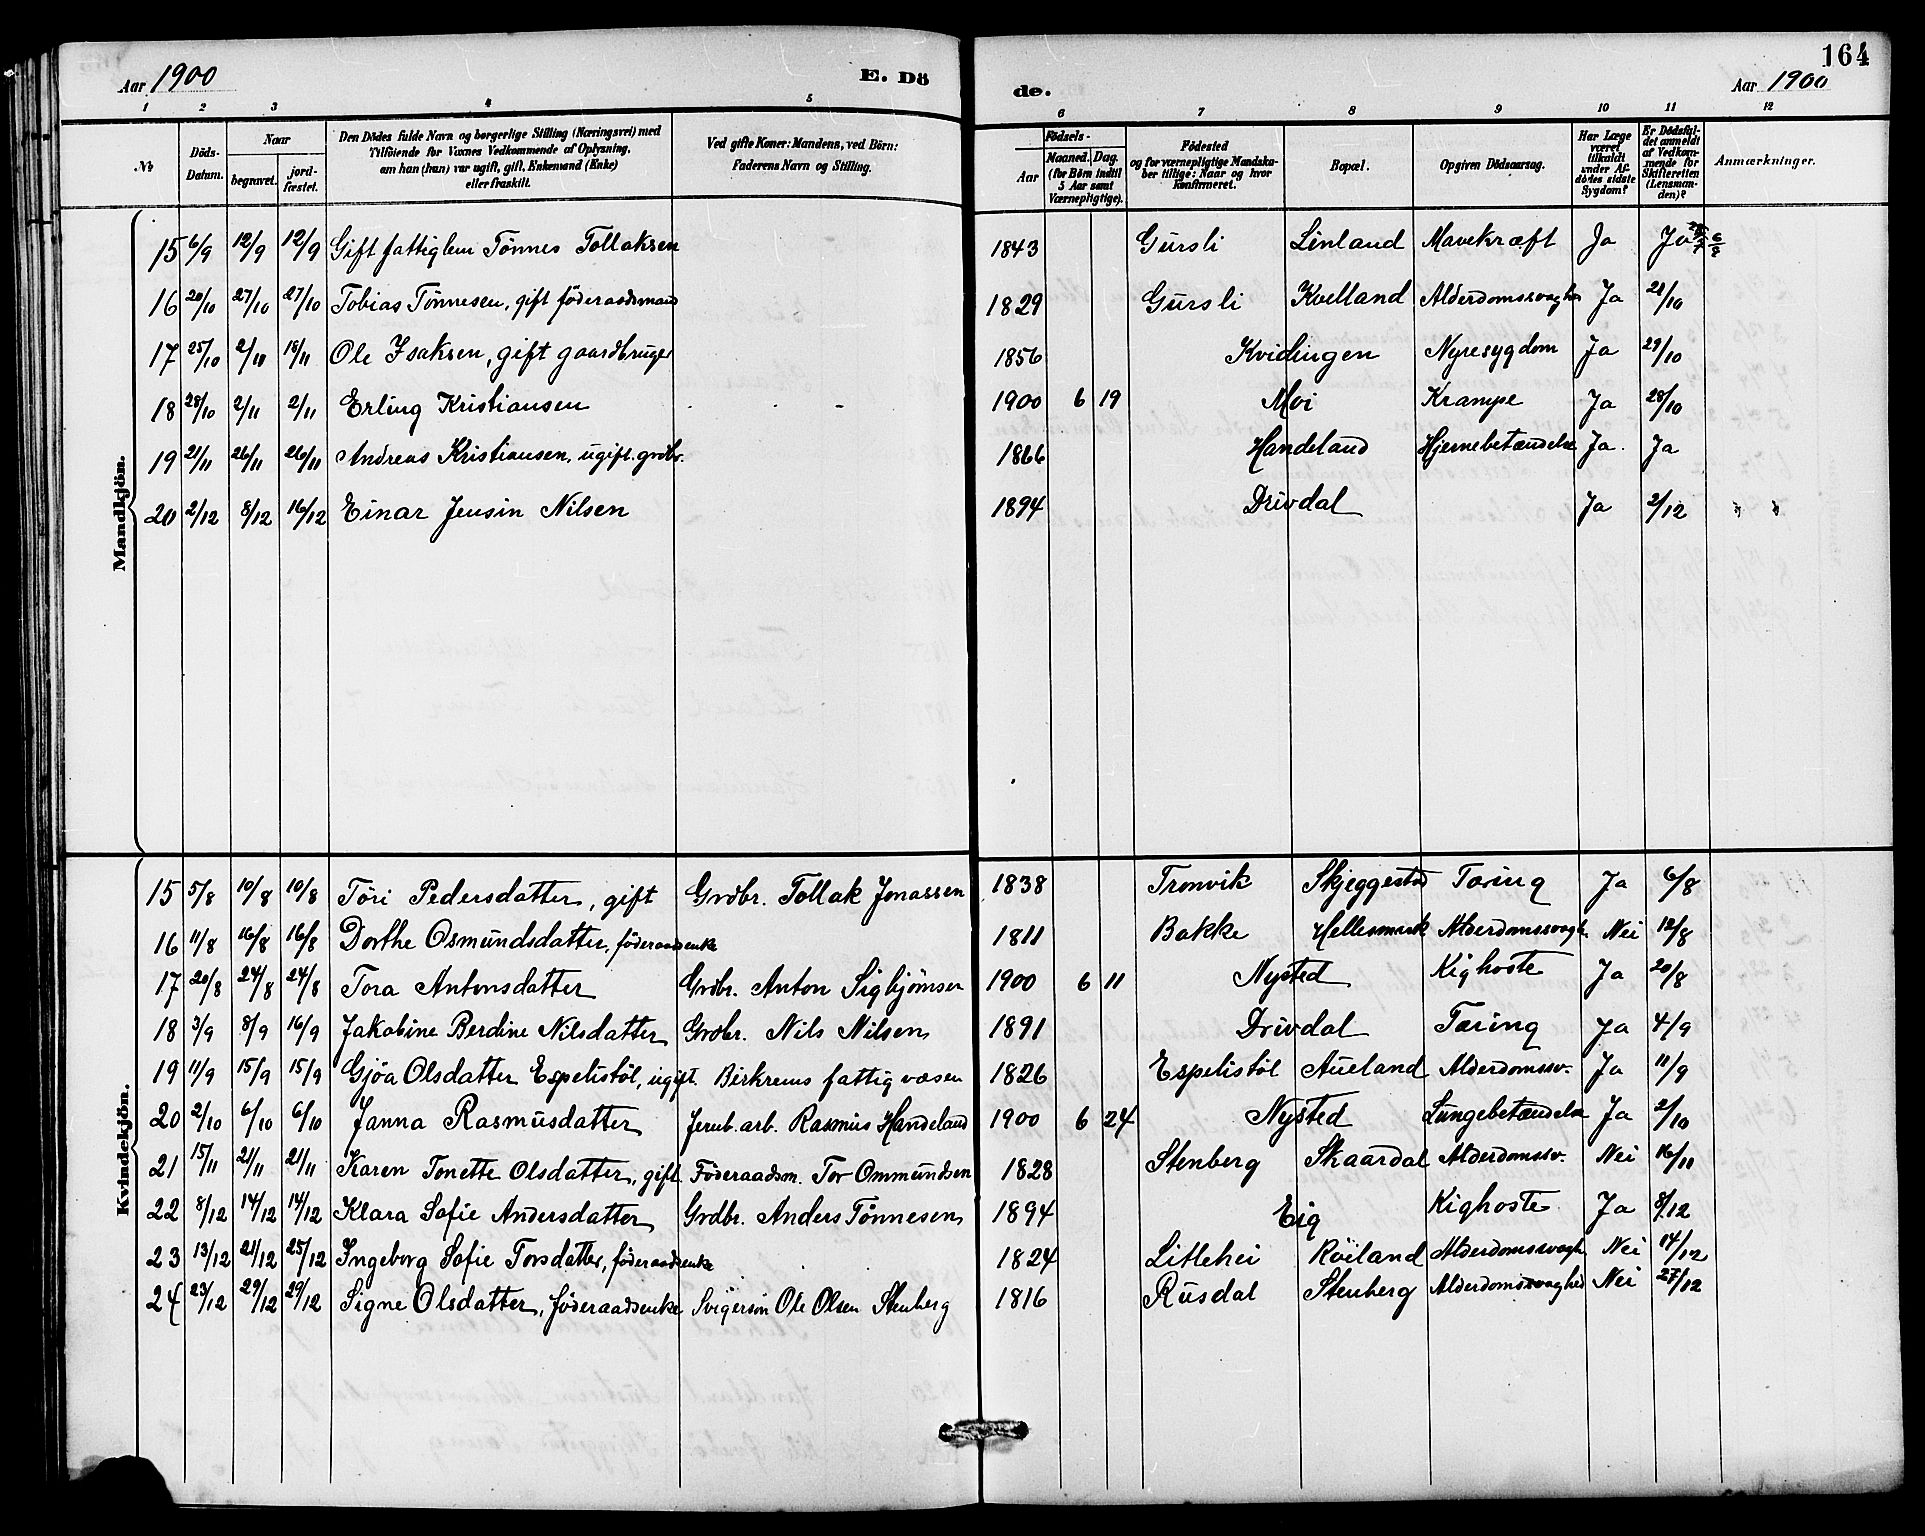 164
Aar 1900 E. Dö de. Aar 1900
1 2 3 4 5 6 7 8 9 10 11 12
No. Döds-Datum. Naar begravet. jordfæstet. Den Dödes fulde Navn og borgerlige Stilling (Næringsvei) med Tilföiende for Voxnes Vedkommende af Oplysning, om han (hun) var ugift, gift, Enkemand (Enke) eller fraskilt. Ved gifte Koner: Mandens, ved Börn: Faderens Navn og Stilling. Födsels- Aar Maaned. Dag. (for Börn indtil 5 Aar samt Værnepligtige). Födested og for værnepligtige Mandskaber tillige: Naar og hvor Konfirmeret. Bopæl. Opgiven Dödsaarsag. Har Læge været tilkaldt under Afdödes sidste Sygdom? Er Dödsfaldet anmeldt af Vedkommende for Skifteretten (Lensmanden)? Anmærkninger.
Mandkjön.
15 6/9 12/9 12/9 Gift fattiglem Tönnes Tollaksen 1843 Gursli Linland Mavekræft Ja Ja
16 20/10 27/10 27/10 Tobias Tönnesen, gift föderaadsmand 1829 Gursli Kvelland Alderdomssvaghed Ja 21/10
17 25/10 2/11 18/11 Ole Isaksen, gift gaardbruger 1856 Kvidingen Nyresygdom Ja 29/10
18 28/10 2/11 2/11 Erling Kristiansen - - 1900 6 19 Moi Krampe Ja 28/10
19 21/11 26/11 26/11 Andreas Kristiansen, ugift. grdbr. 1866 Handeland Hjernebetændelse Ja. Ja
20 2/12 8/12 16/12 Einar Jensin Nilsen 1894 Drivdal Ja 2/12 " "
Kvindekjön.
15 5/8 10/8 10/8 Töri Pedersdatter, gift Grdbr. Tollak Jonassen 1838 Tronvik Skjeggestad Tæring Ja 6/8
16 11/8 16/8 16/8 Dorthe Osmundsdatter, föderaadsenke 1811 Bakke Hellesmark Alderdomssvagh. Nei 12/8
17 20/8 24/8 24/8 Tora Antonsdatter Grdbr. Anton Sigbjörnsen 1900 6 11 Nysted Kighoste Ja 20/8
18 3/9 8/9 16/9 Jakobine Berdine Nilsdatter Grdbr. Nils Nilsen 1891 Drivdal Tæring Ja 4/9
19 11/9 15/9 15/9 Gjöa Olsdatter Espelistöl, ugift. Birkrems fattigvæsen 1826 Espelistöl Aueland Alderdomssv. Ja 11/9
20 2/10 6/10 6/10 Janna Rasmusdatter Jernb. arb. Rasmus Handeland 1900 6 24 Nysted Lungebetændelse Ja 2/10
21 15/11 21/11 21/11 Karen Tonette Olsdatter, gift. Föderaadsm. Tor Ommundsen 1828 Stenberg Skaardal Alderdomssv. Nei 16/11
22 8/12 14/12 14/12 Klara Sofie Andersdatter Grdbr. Anders Tönnesen 1894 Eig Kighoste Ja 8/12
23 13/12 21/12 25/12 Ingeborg Sofie Torsdatter, föderaadsenke 1824 Litlehei Röiland Alderdomssvagh. Nei 14/12
24 23/12 29/12 29/12 Signe Olsdatter, föderaadsenke Svigersön Ole Olsen Stenberg 1816 Rusdal Stenberg Alderdomssvaghed Nei 27/12